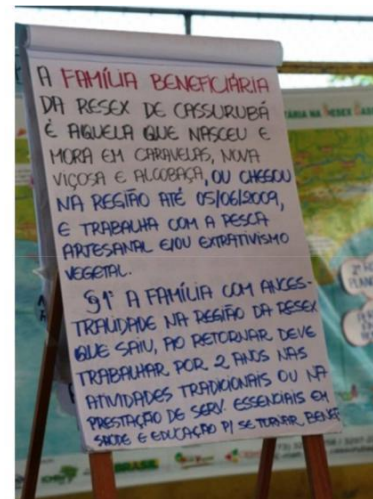 A FAMÍLIA BENEFICIÁRIA
DA RESEX DE CASSURUBÁ
É AQUELA QUE NASCEU E
MORA EM CARAVELAS, NOVA
VIÇOSA E ALCOBAÇA, OU CHEGOU
NA REGIÃO ATÉ 05/06/2009,
E TRABALHA COM A PESCA
ARTESANAL E/OU EXTRATIVISMO
VEGETAL.
§1º A FAMÍLIA COM ANCES-
TRALIDADE NA REGIÃO DA RESEX
QUE SAIU, AO RETORNAR DEVE
TRABALHAR POR 2 ANOS NAS
ATIVIDADES TRADICIONAIS OU NA
PRESTAÇÃO DE SERV. ESSENCIAIS EM
SAÚDE E EDUCAÇÃO P/ SE TORNAR BENEF
NA RESEX
BRASIL